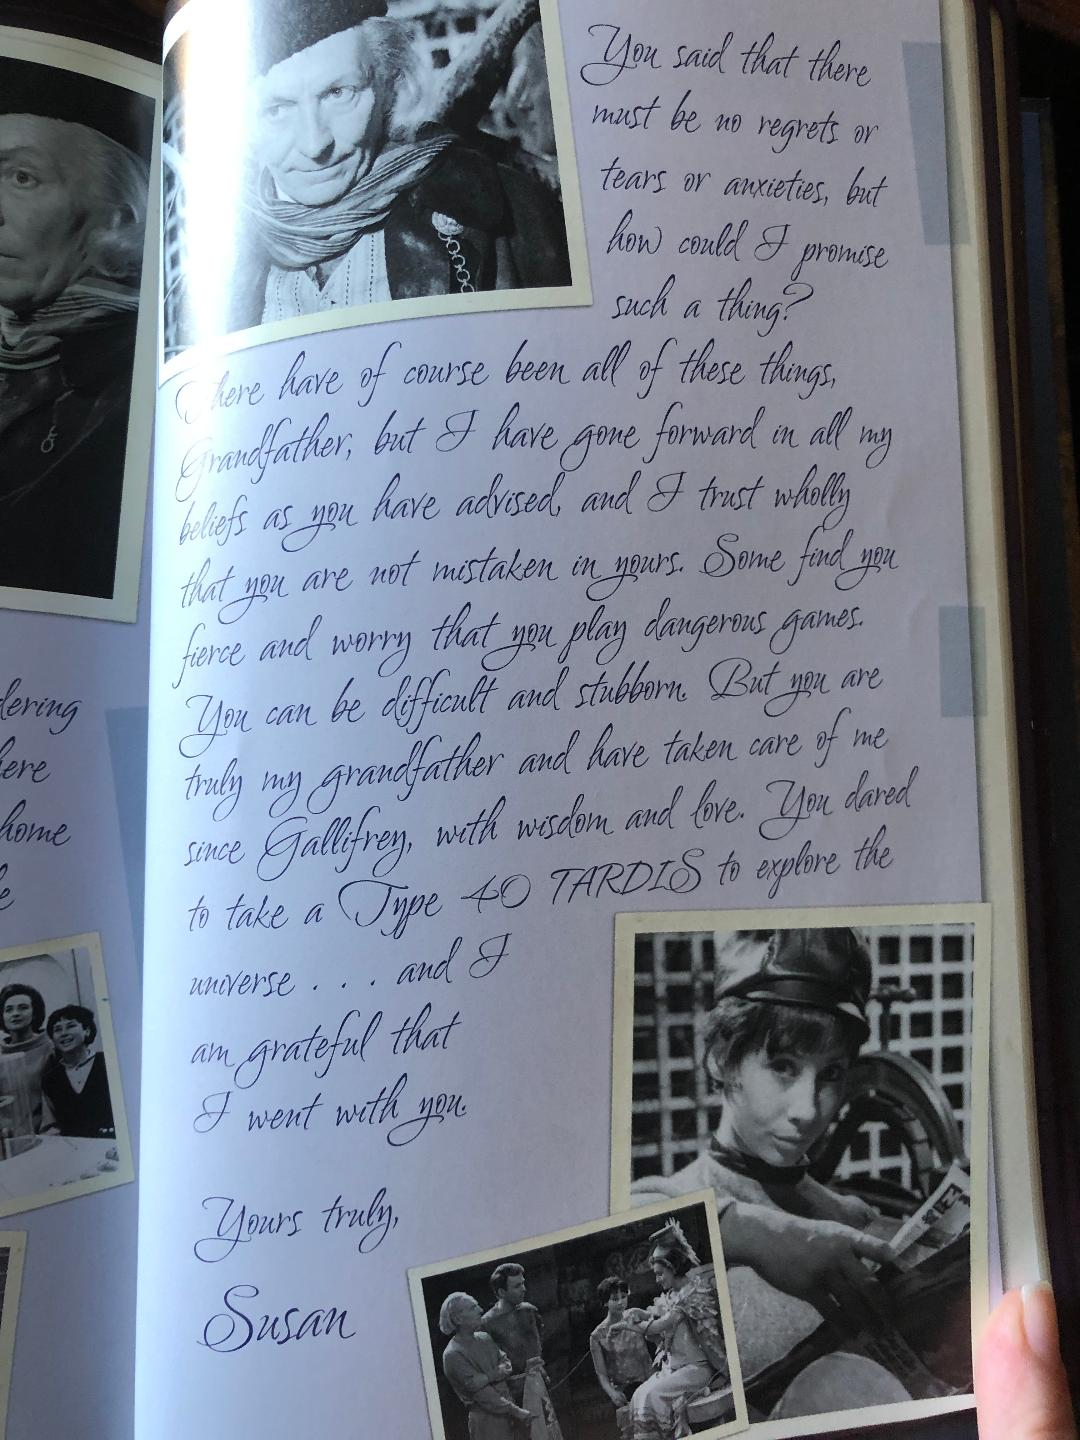 You said that there
must be no regrets or
tears or anxieties, but
how could I promise
such a thing?
There have of course been all of these things,
Grandfather, but I have gone forward in all my
beliefs as you have advised, and I trust wholly
that you are not mistaken in yours. Some find you
fierce and worry that you play dangerous games.
You can be difficult and stubborn. But you are
truly my grandfather and have taken care of me
since Gallifrey, with wisdom and love. You dared
to take a Type 40 TARDIS to explore the
universe . . . and I
am grateful that
I went with you.
Yours truly,
Susan
dering
home